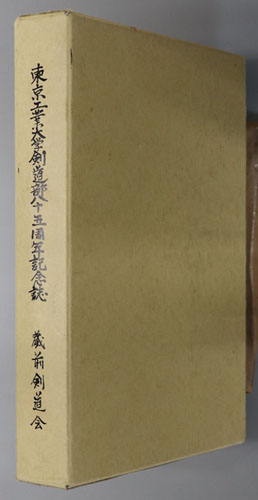 東京工業大学剣道部八十五周年記念誌
蔵前剣道会